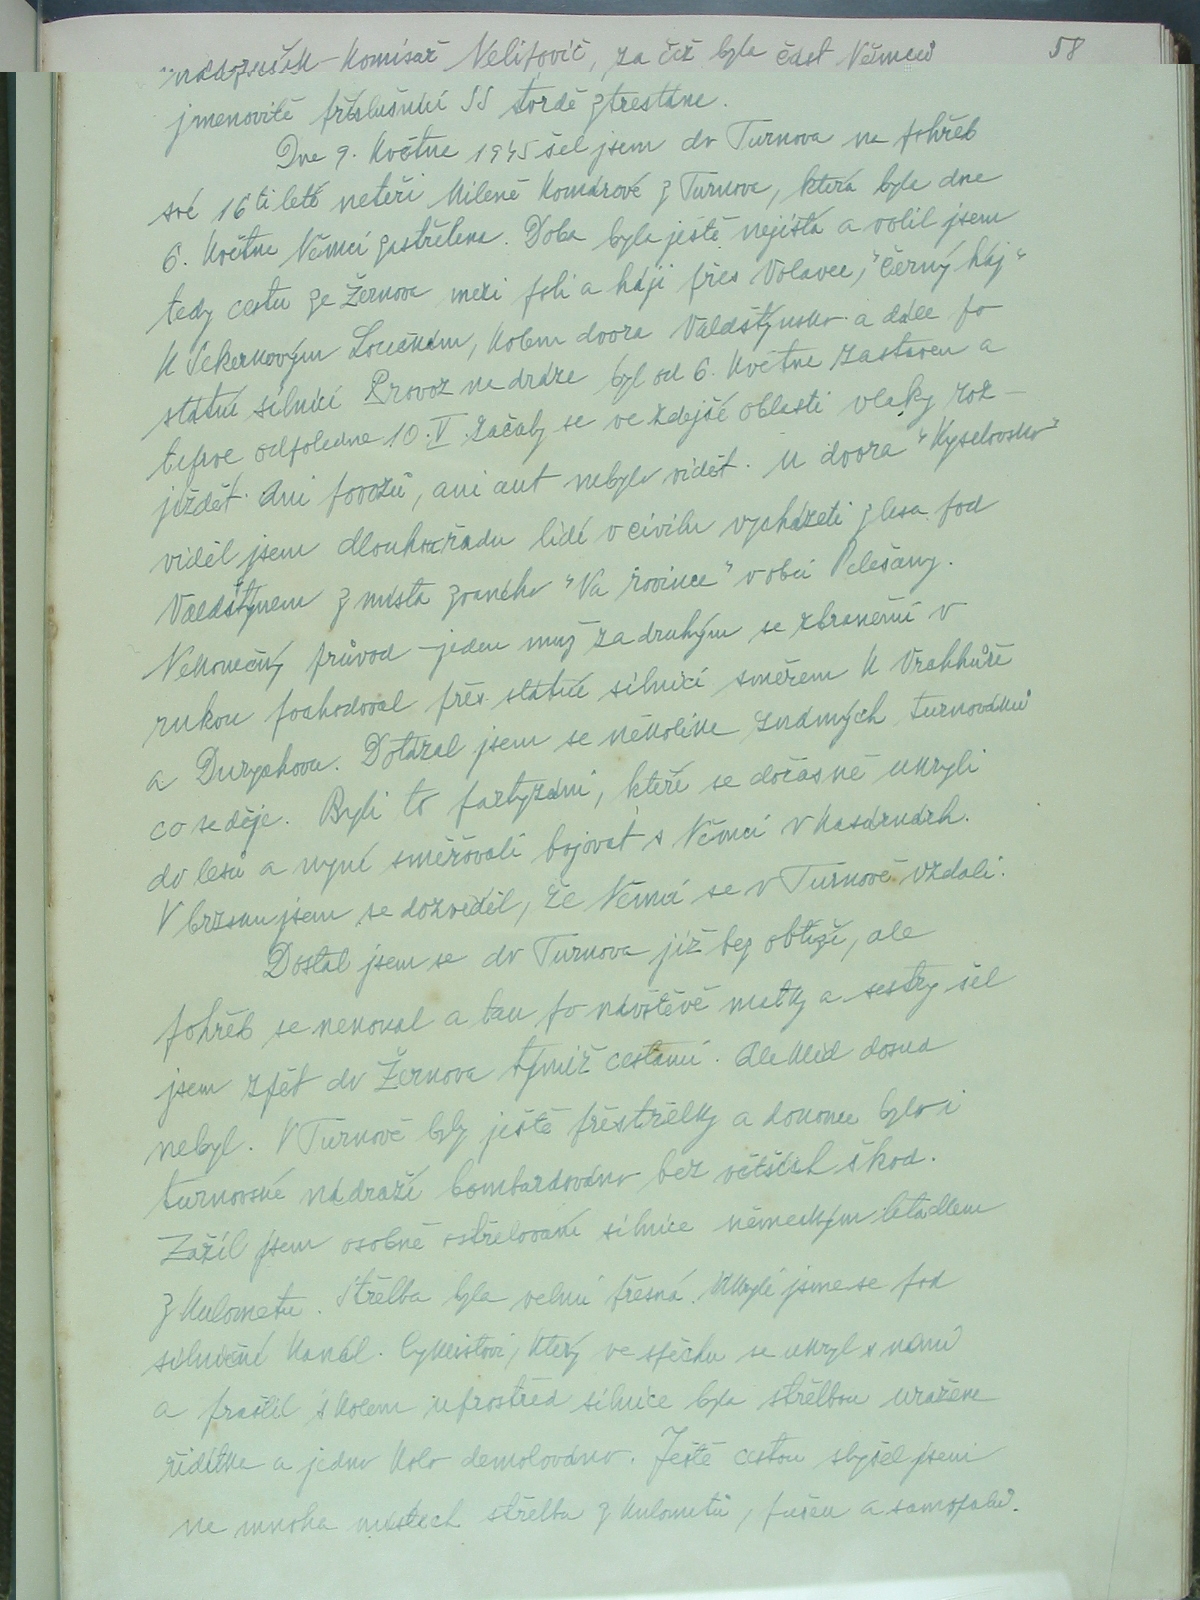 58
komisař Nelitovič, za což byla část Němců
jmenovitě příslušníci SS tvrdě ztrestána.
Dne 9. května 1945 šel jsem do Turnova na pohřeb
své 16ti leté neteři Mileně Komárové z Turnova, která byla dne
6. května Němci zastřelena. Doba byla ještě nejistá a volil jsem
tedy cestu ze Žernova mezi poli a háji přes Volavec, "Černý háj"
k Sekerkovým Loučkám, kolem dvora Valdštýnsko a dále po
státní silnici Provoz na dráze byl od 6. května zastaven a
teprve odpoledne 10.V. začaly se ve zdejší oblasti vlaky roz-
jíždět. Ani povozů, ani aut nebylo vidět. U dvora "Kyselovsko"
viděl jsem dlouhou řadu lidí v civilu vycházeti z lesa pod
Valdštýnem z místa zvaného "Na rovince" v obci Pelešany.
Nekonečný průvod - jeden muž za druhým se zbraněmi v
rukou pochodoval přes státní silnici směrem k Vrchhůře
a Durychovu. Dotázal jsem se několika známých turnováků
co se děje. Byli to partyzáni, kteří se dočasně ukryli
do lesů a nyní směřovali bojovat s Němci v kasárnách.
V brzku jsem se dozvěděl, že Němci se v Turnově vzdali.
Dostal jsem se do Turnova již bez obtíží, ale
pohřeb se nekonal a tak po návštěvě matky a sestry šel
jsem zpět do Žernova týmiž cestami. Ale klid dosud
nebyl. V Turnově byly ještě přestřelky a dokonce bylo i
turnovské nádraží bombardováno bez větších škod.
Zažil jsem osobně ostřelování silnice německým letadlem
z kulometu. Střelba byla velmi přesná. Ukryli jsme se pod
silniční kanál. Cyklistovi, který ve spěchu se ukryl s námi
a praštil s kolem uprostřed silnice byla střelbou uražena
řidítka a jedno kolo demolováno. Ještě cestou slyšel jsem
na mnoha místech střelbu z kulometů, pušek a samopalů.